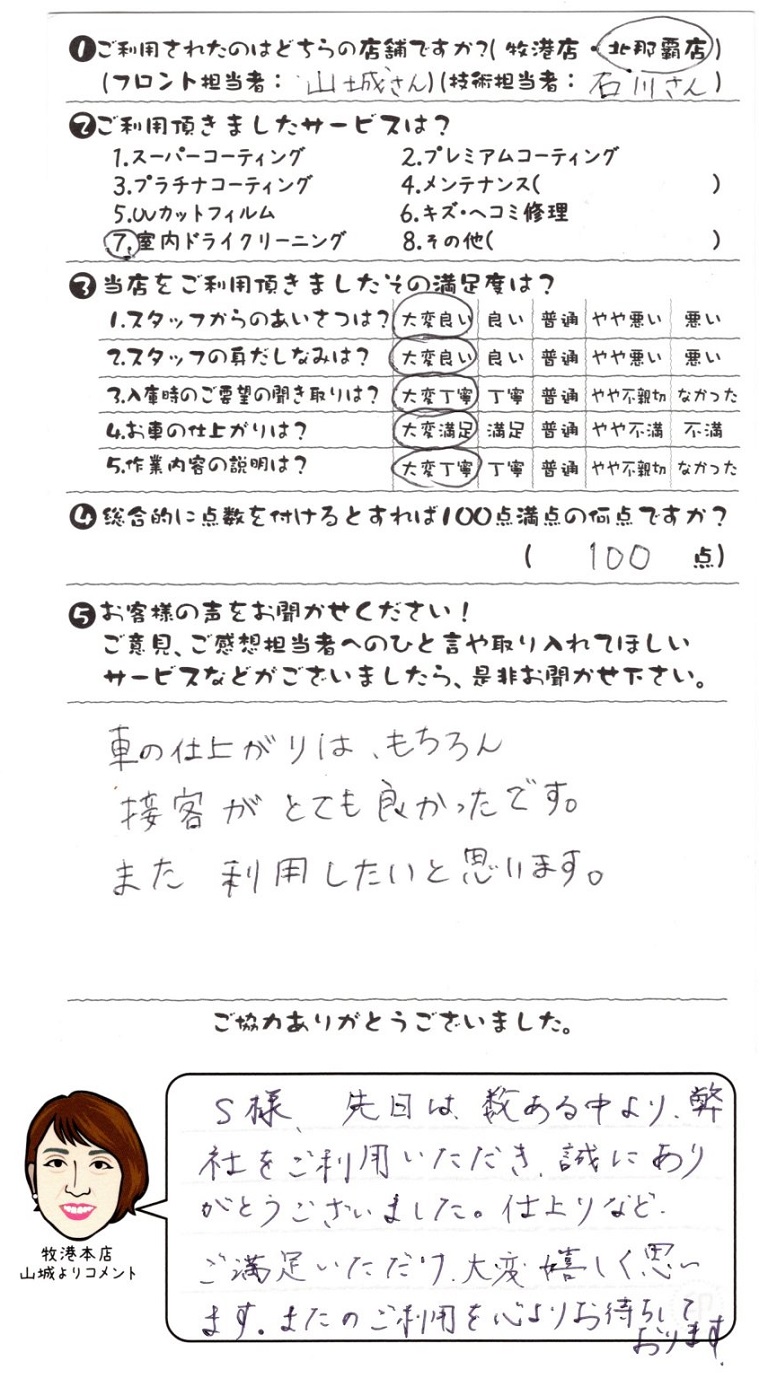 ❶ご利用されたのはどちらの店舗ですか?(牧港店・北那覇店)
(フロント担当者：山城さん)(技術担当者：石川さん)
❷ご利用頂きましたサービスは?
1.スーパーコーティング 2.プレミアムコーティング
3.プラチナコーティング 4.メンテナンス( )
5.UVカットフィルム 6.キズ・ヘコミ修理
7.室内ドライクリーニング 8.その他( )
❸当店をご利用頂きましたその満足度は?
1.スタッフからのあいさつは? 大変良い 良い 普通 やや悪い 悪い
2.スタッフの身だしなみは? 大変良い 良い 普通 やや悪い 悪い
3.入庫時のご要望の聞き取りは? 大変丁寧 丁寧 普通 やや不親切 なかった
4.お車の仕上がりは? 大変満足 満足 普通 やや不満 不満
5.作業内容の説明は? 大変丁寧 丁寧 普通 やや不親切 なかった
❹総合的に点数を付けるとすれば100点満点の何点ですか?
( 100 点)
❺お客様の声をお聞かせください!
ご意見、ご感想担当者へのひと言や取り入れてほしい
サービスなどがございましたら、是非お聞かせ下さい。
車の仕上がりは、もちろん
接客がとても良かったです。
また 利用したいと思います。
ご協力ありがとうございました。
S様、先日は、数ある中より、弊
社をご利用いただき、誠にあり
がとうございました。仕上りなど、
ご満足いただけ、大変嬉しく思い
ます。またのご利用を心よりお待ちして
おります。
牧港本店
山城よりコメント